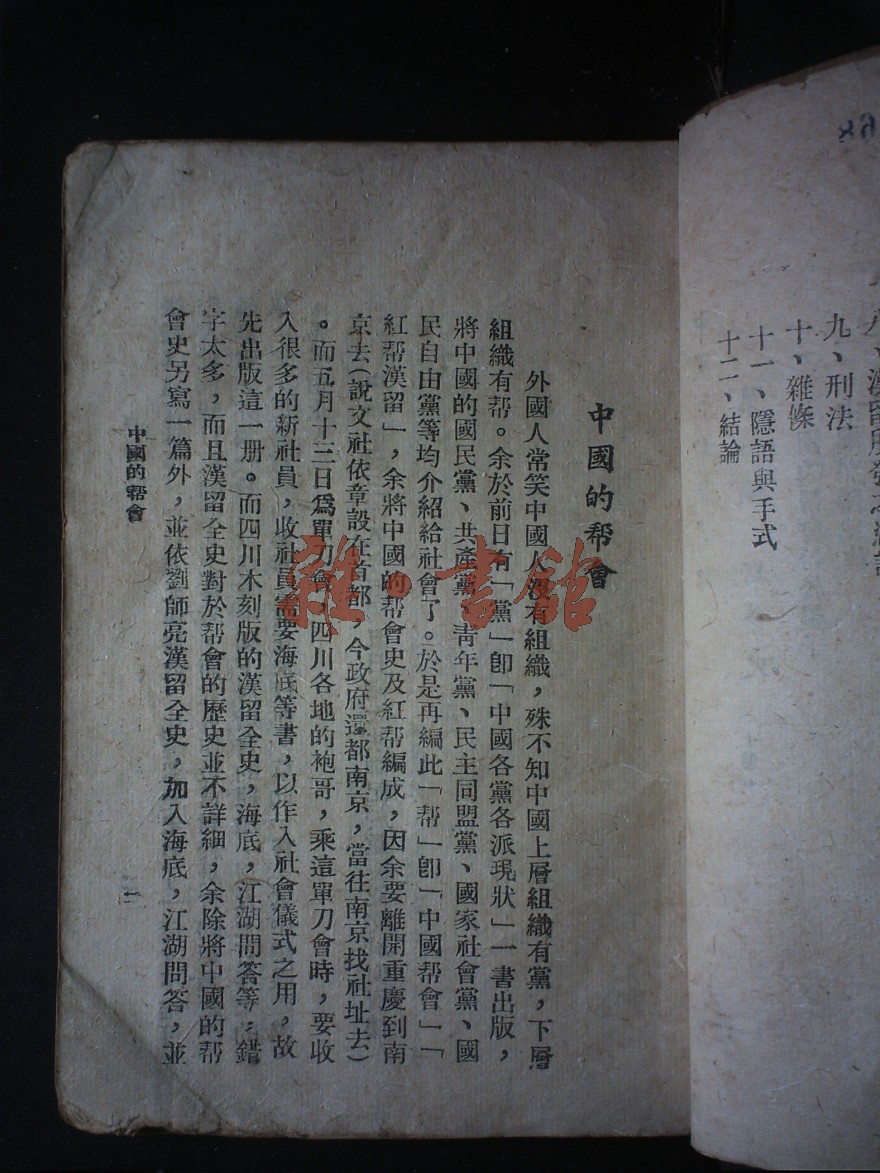 68
九、刑法
十、雜條
十一、隱語與手式
十二、結論
中國的帮會
外國人常笑中國人沒有組織，殊不知中國上層組織有黨，下層
組織有帮。余於前日有「黨」卽「中國各黨各派現狀」一書出版，
將中國的國民黨、共產黨、靑年黨、民主同盟黨、國家社會黨、國
民自由黨等均介紹給社會了。於是再編此「帮」卽「中國帮會」「
紅帮漢留」，余將中國的帮會史及紅帮編成，因余要離開重慶到南
京去(說文社依章設在首都，今政府還都南京，當往南京找社址去)
。而五月十三日爲單刀會，四川各地的袍哥，乘這單刀會時，要收
入很多的新社員，收社員需要海底等書，以作入社會儀式之用，故
先出版這一册。而四川木刻版的漢留全史，海底，江湖問答等，錯
字太多，而且漢留全史對於帮會的歷史並不詳細，余除將中國的帮
會史另寫一篇外，並依劉師亮漢留全史，加入海底，江湖問答，並
中國的帮會
一
雜·書館